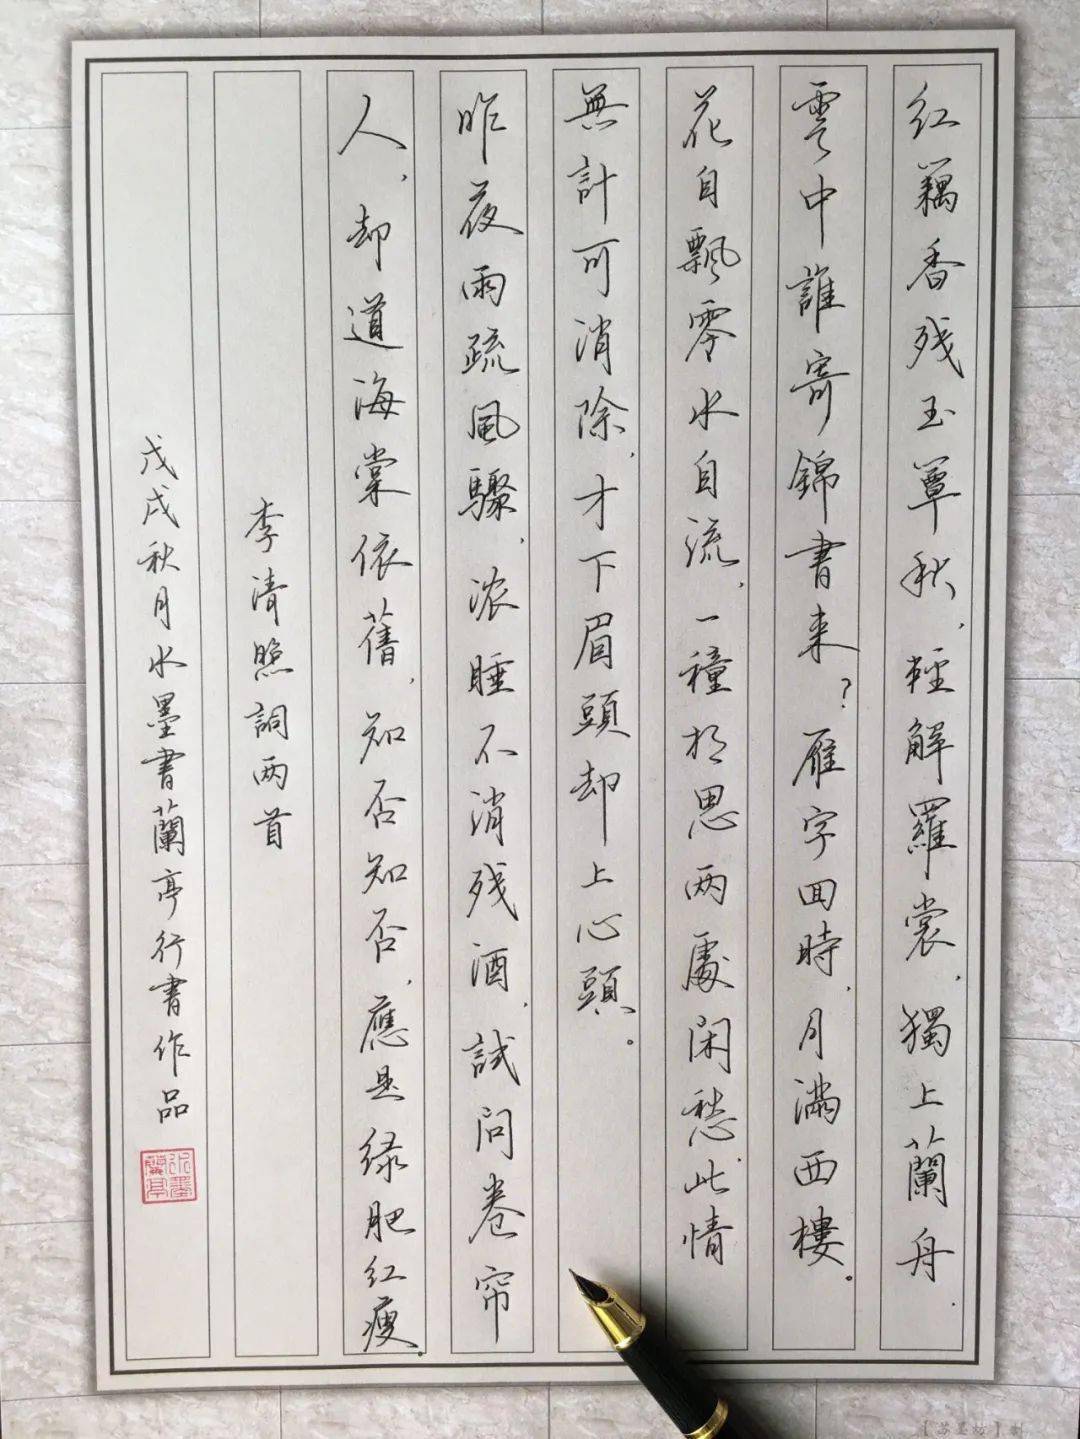 红藕香残玉簟秋,輕解羅裳,獨上蘭舟.
雲中誰寄錦書来?雁字回時,月滿西樓。
花自飄零水自流,一種相思两處闲愁,此情
無計可消除,才下眉頭却上心頭。
昨夜雨疏風驟,浓睡不消残酒,試问卷帘
人,却道海棠依舊,知否知否,應是绿肥红瘦。
李清照詞两首
戊戌秋月水墨書蘭亭行書作品
水墨蘭亭